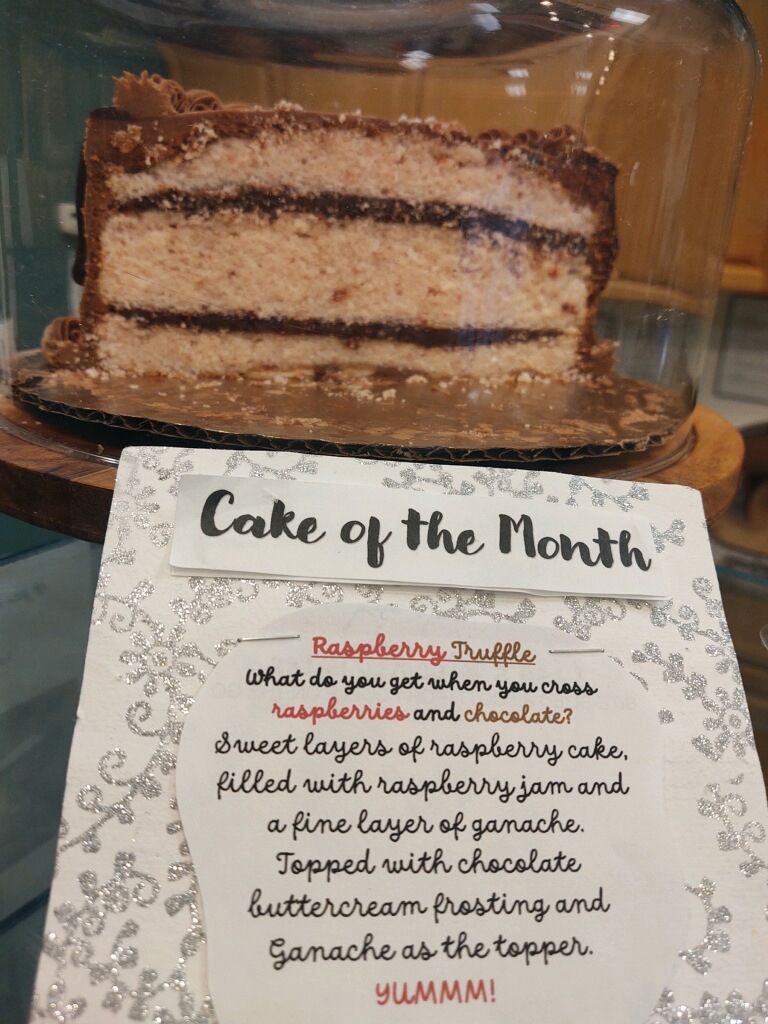 Cake of the Month
Raspberry Truffle
What do you get when you cross
raspberries and chocolate?
Sweet layers of raspberry cake,
filled with raspberry jam and
a fine layer of ganache.
Topped with chocolate
buttercream frosting and
Ganache as the topper.
YUMMM!